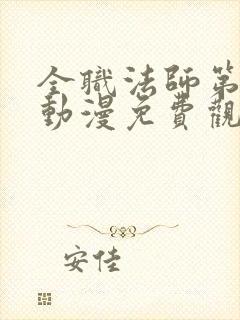 全職法師第
動漫免費觀
安佳